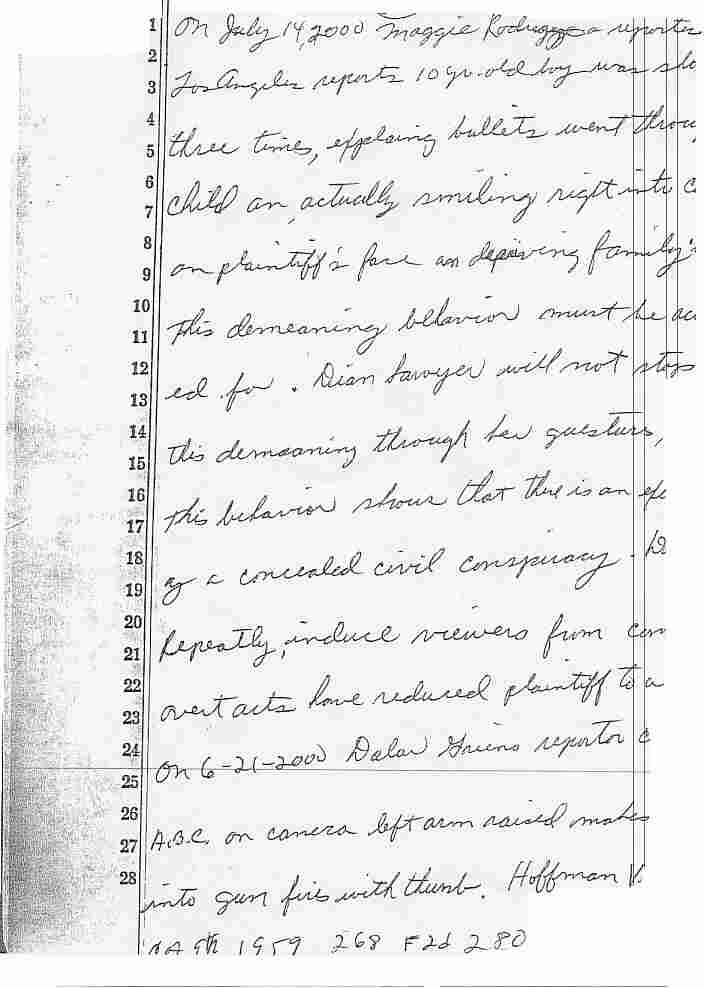 1 On July 14, 2000 Maggie Rodriguez a reporter
2
3 Los Angeles reports 10 yr. old boy was sho
4
5 three times, explaing bullets went throu
6
7 child an actually smiling right into c
8
9 on plaintiff's face an depriving family's
10
11 This demeaning behavior must be ac
12
13 ed for. Dian Sawyer will not stop
14
15 this demeaning through her guesturs,
16
17 This behavior shows that there is an
18
19 a concealed civil conspiracy.
20
21 Repeatly, induce viewers from com
22
23 overt acts have reduced plaintiff to a
24
25 On 6-21-2000 reportor
26
27 A.B.C. on camera left arm raised makes
28
into gun fires with thumb. Hoffman V.
CA 9th 1959 268 F2d 280